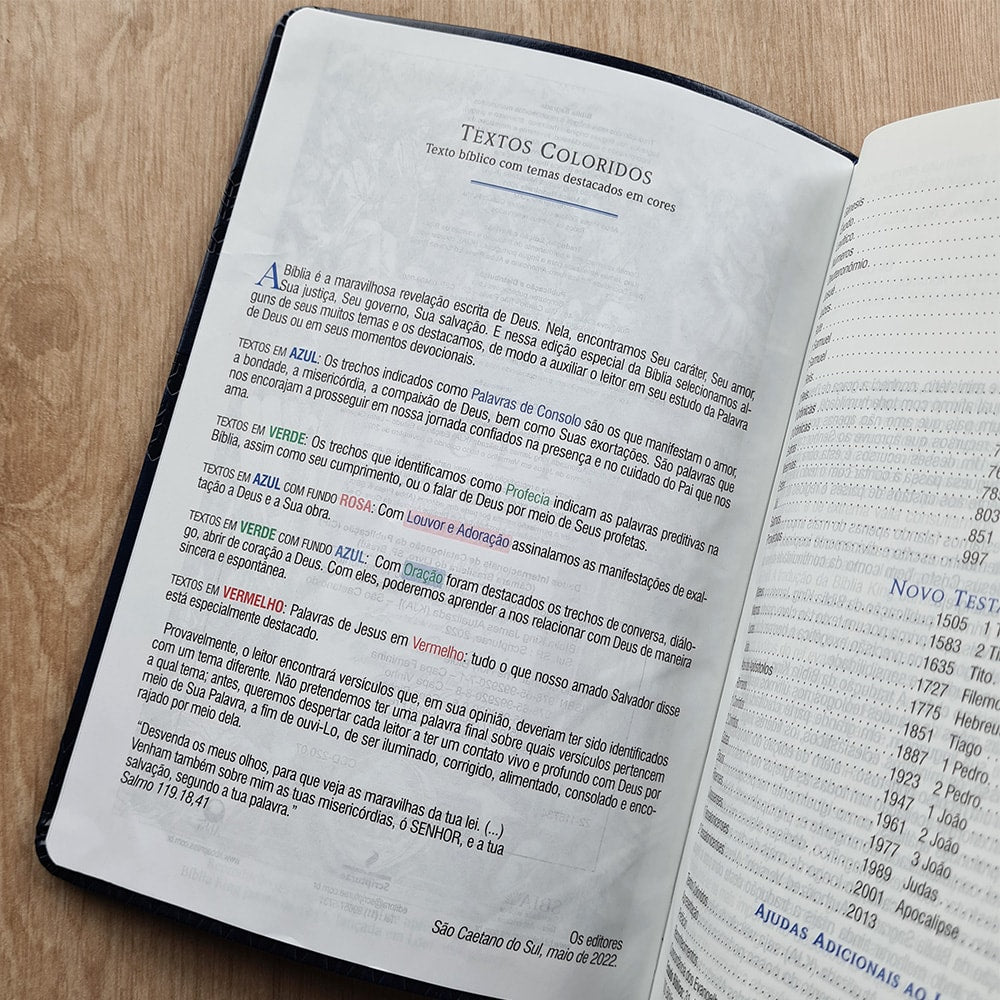 TEXTOS COLORIDOS
Texto bíblico com temas destacados em cores
A Bíblia é a maravilhosa revelação escrita de Deus. Nela, encontramos Seu caráter, Seu amor,
Sua justiça, Seu governo, Sua salvação. E nessa edição especial da Bíblia selecionamos al-
guns de seus muitos temas e os destacamos, de modo a auxiliar o leitor em seu estudo da Palavra
de Deus ou em seus momentos devocionais.
TEXTOS EM AZUL: Os trechos indicados como Palavras de Consolo são os que manifestam o amor,
a bondade, a misericórdia, a compaixão de Deus, bem como Suas exortações. São palavras que
nos encorajam a prosseguir em nossa jornada confiados na presença e no cuidado do Pai que nos
ama.
TEXTOS EM VERDE: Os trechos que identificamos como Profecia indicam as palavras preditivas na
Bíblia, assim como seu cumprimento, ou o falar de Deus por meio de Seus profetas.
TEXTOS EM AZUL COM FUNDO ROSA: Com Louvor e Adoração assinalamos as manifestações de exal-
tação a Deus e a Sua obra.
TEXTOS EM VERDE COM FUNDO AZUL: Com Oração foram destacados os trechos de conversa, diálo-
go, abrir de coração a Deus. Com eles, poderemos aprender a nos relacionar com Deus de maneira
sincera e espontânea.
TEXTOS EM VERMELHO: Palavras de Jesus em Vermelho: tudo o que nosso amado Salvador disse
está especialmente destacado.
Provavelmente, o leitor encontrará versículos que, em sua opinião, deveriam ter sido identificados
com um tema diferente. Não pretendemos ter uma palavra final sobre quais versículos pertencem
a qual tema; antes, queremos despertar cada leitor a ter um contato vivo e profundo com Deus por
meio de Sua Palavra, a fim de ouvi-Lo, de ser iluminado, corrigido, alimentado, consolado e enco-
rajado por meio dela.
“Desvenda os meus olhos, para que veja as maravilhas da tua lei. (...)
Venham também sobre mim as tuas misericórdias, ó SENHOR, e a tua
salvação, segundo a tua palavra.”
Salmo 119.18,41
Os editores
São Caetano do Sul, maio de 2022.
803
851
997
NOVO
1505
1583
1635 Tito
1727
1775
1851 Tiago
1887 1 Pedro
1923 2 Pedro
1947 1 João
1961 2 João
1977 3 João
1989 Judas
2001 Apocalipse
2013
AJUDAS ADICIONAIS AO